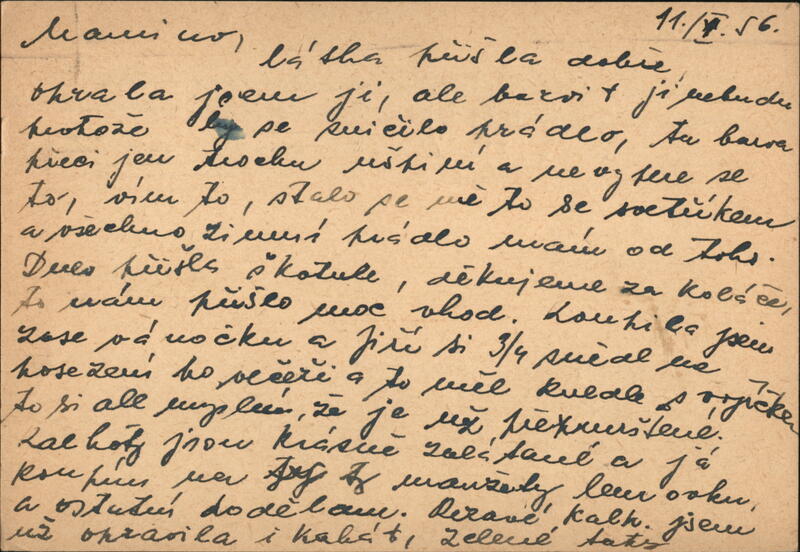 11./V. 56.
Maminko,
látka přišla dobře,
oprala jsem ji, ale barvit ji nebudu
protože by se zničilo prádlo, ta barva
přeci jen trochu ušpiní a nevypere se
to, vím to, stalo se mě to se svetříkem
a všechno zimní prádlo mám od toho.
Dnes přišla škatule, děkujeme za koláče,
to nám přišlo moc vhod. Koupila jsem
zase vánočku a Jiří si 3/4 snědl na
posezení po večeři a to měl knedle s vajíčkem
to si ale myslím, že je už přepurštené.
Kalhoty jsou krásně zalátané a já
koupím na ty manžety lemovku
a ostatní dodělám. Deravé kalh. jsem
už opravila i kabát, zelené tato